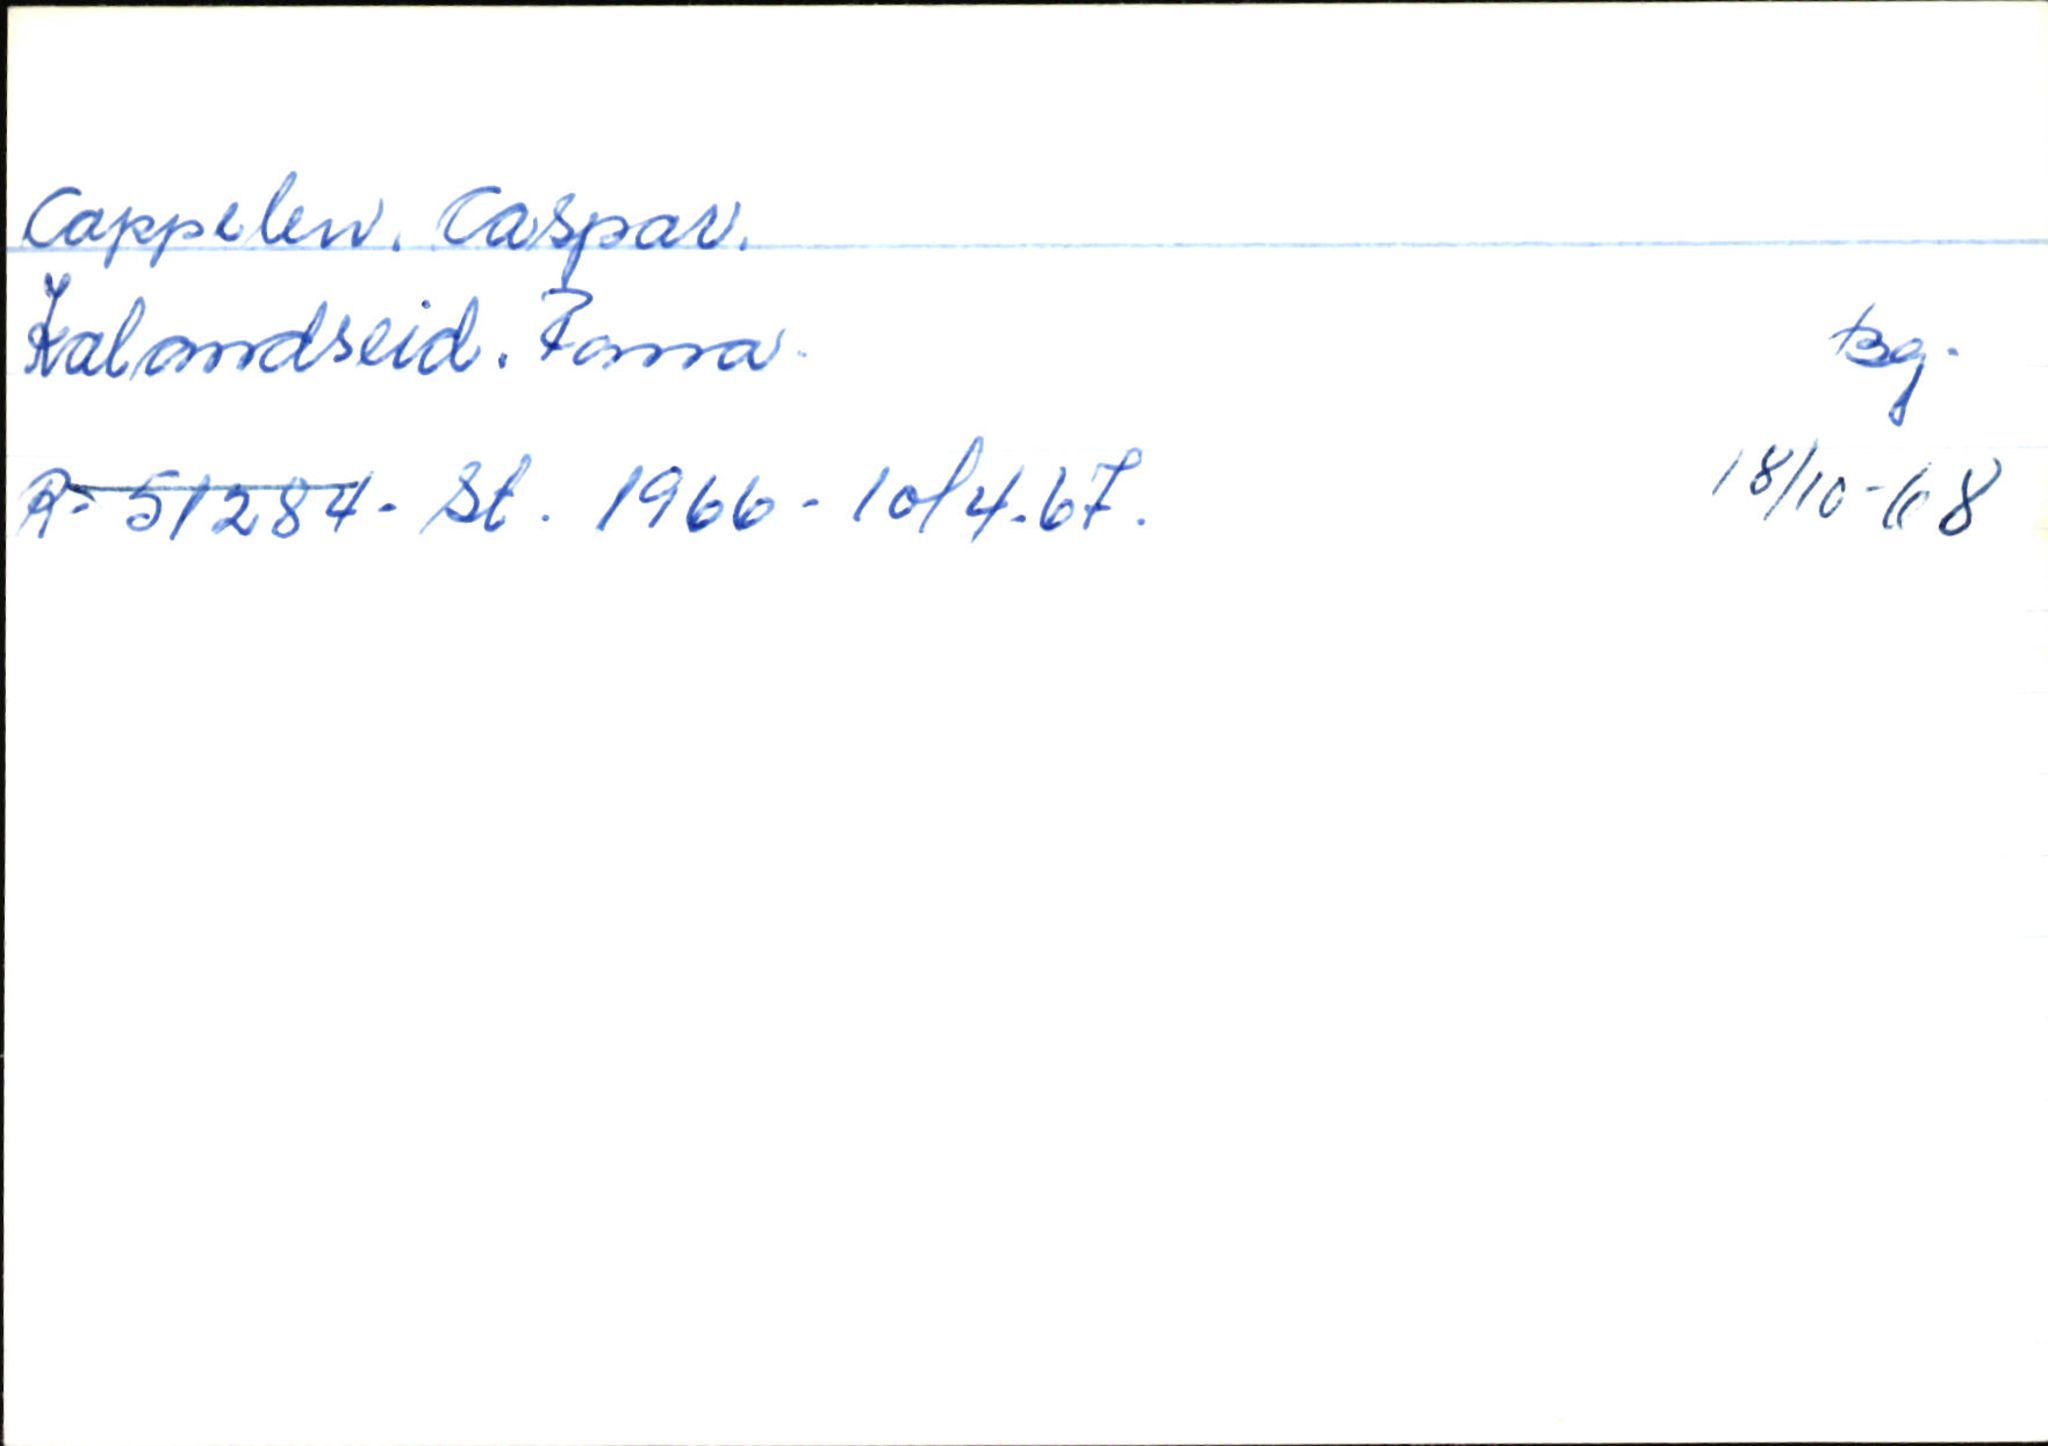 Cappelen. Caspar.
Kalandseid. Fana.
Bg.
R- 51284- St. 1966 - 10/4.67.
18/10-68